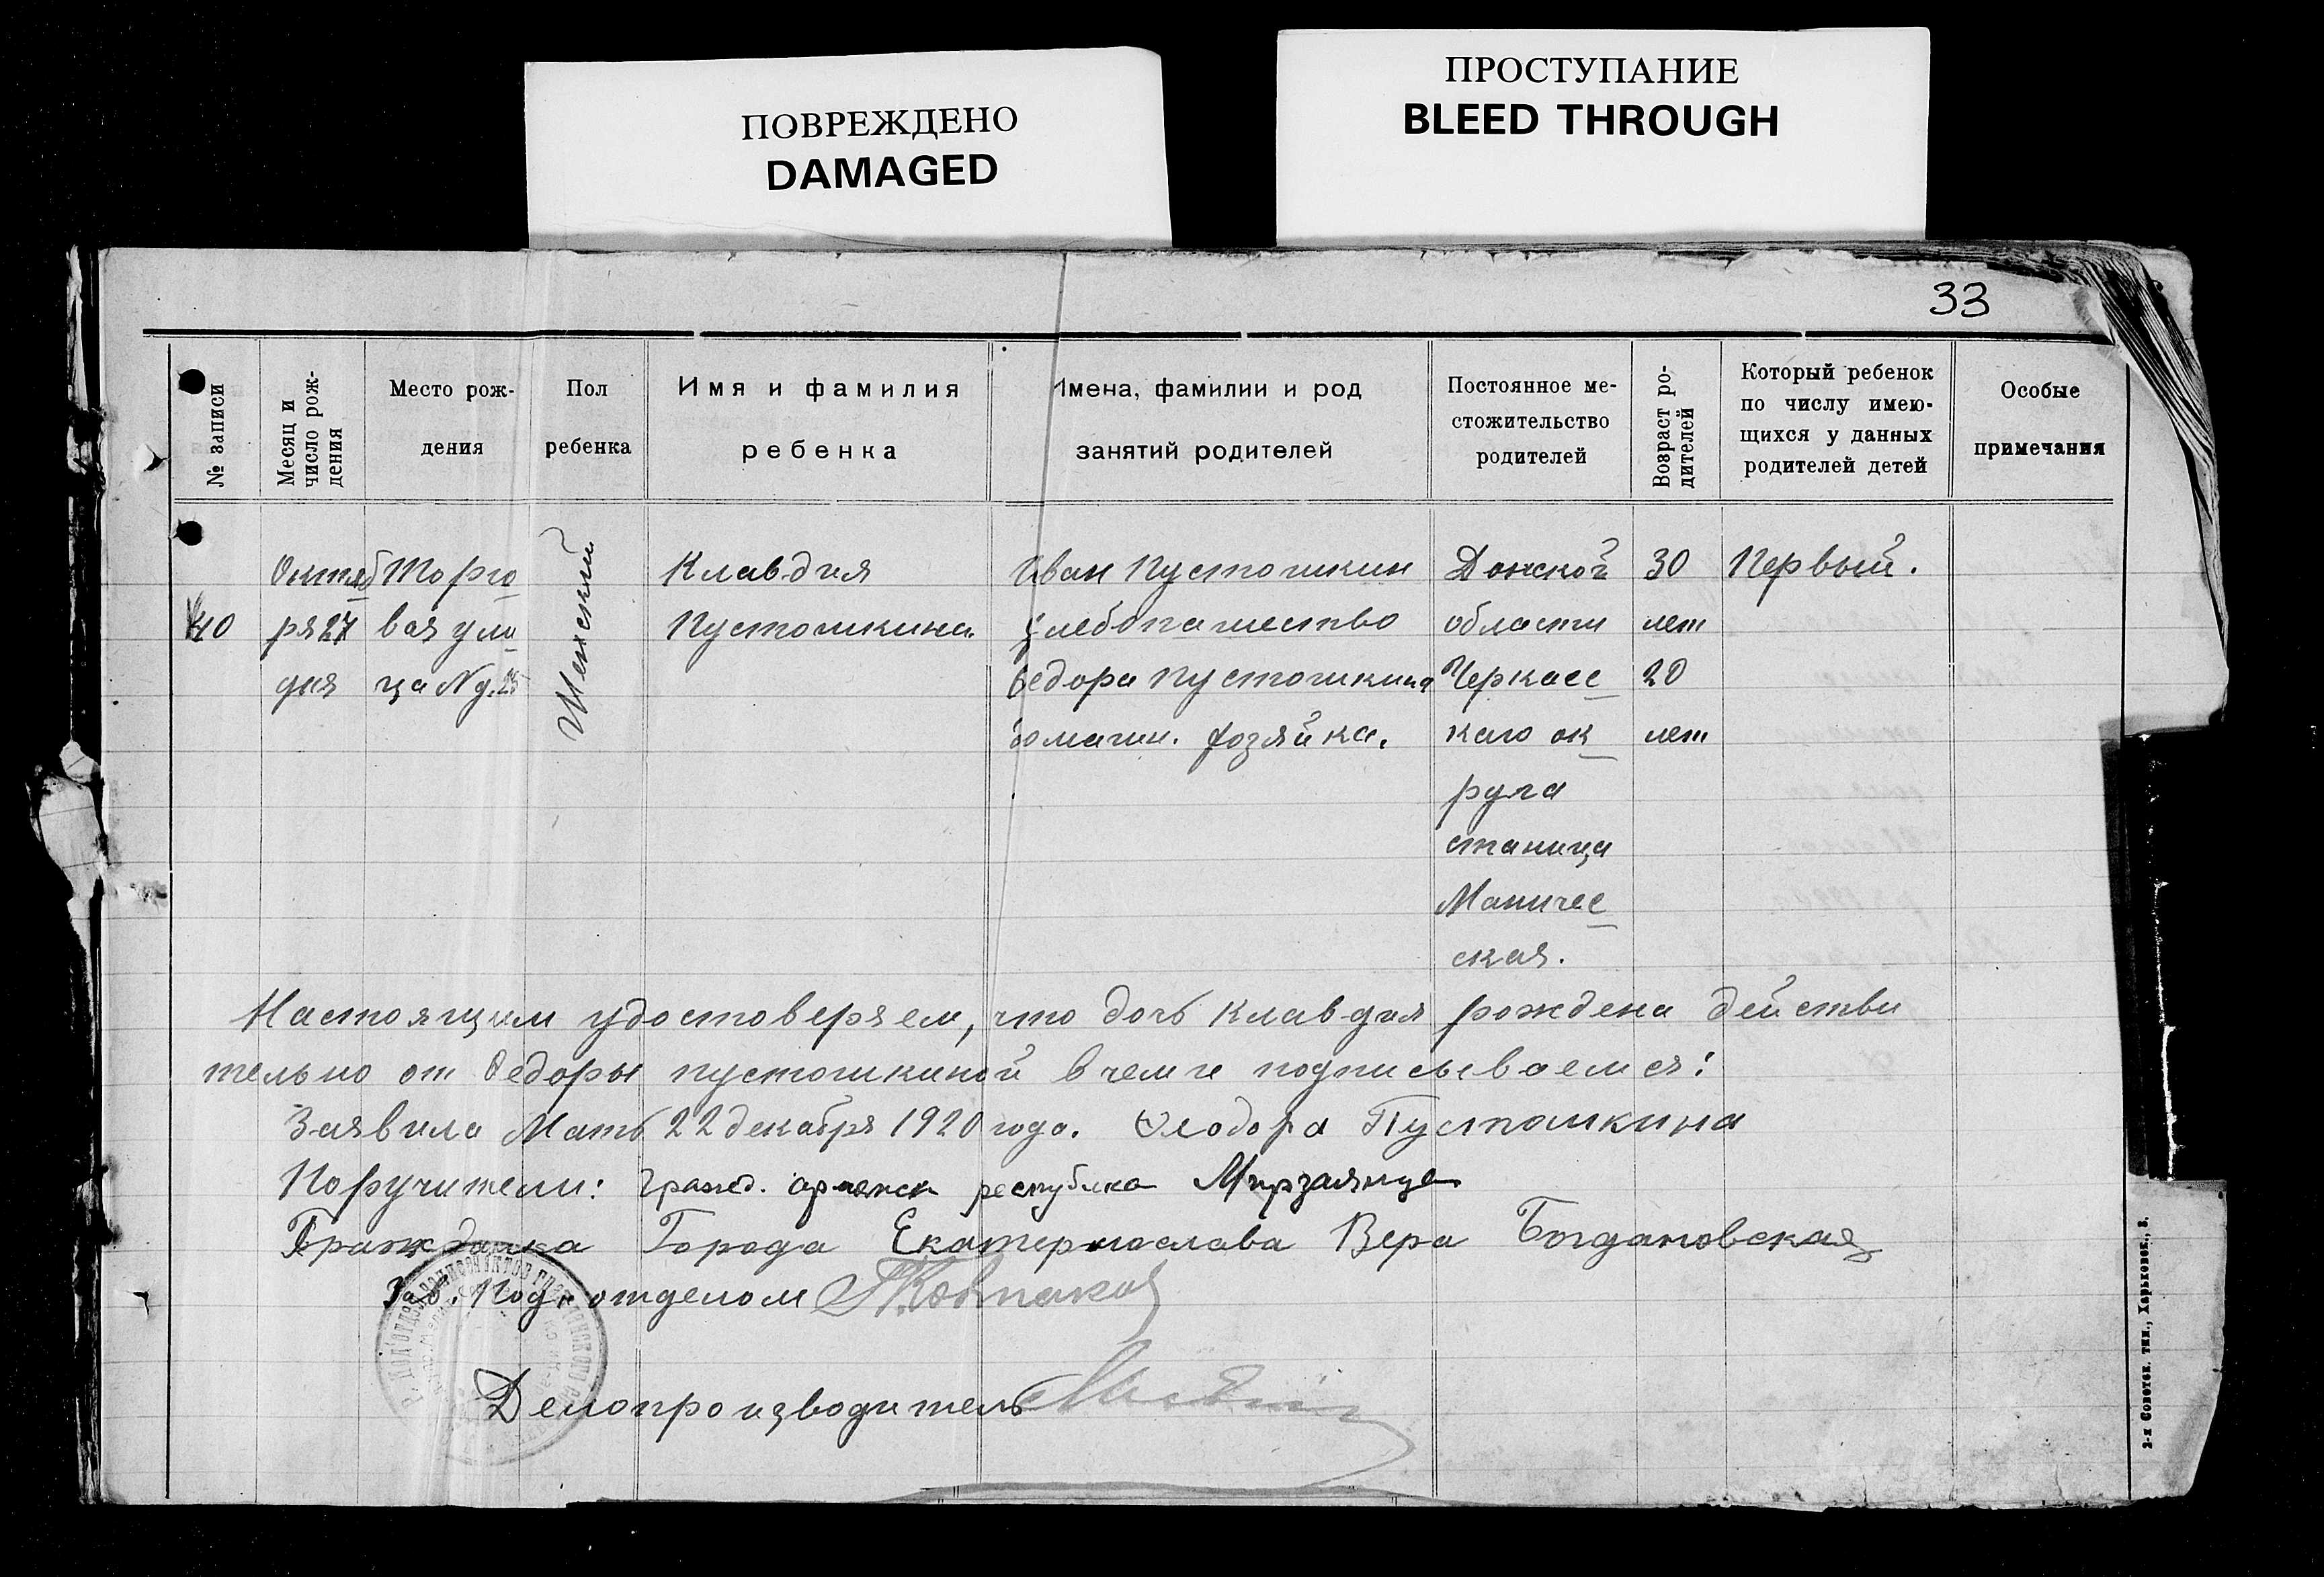 ПОВРЕЖДЕНО
DAMAGED
ПРОСТУПАНИЕ
BLEED THROUGH
33
№ записи
Месяц и
число рож-
дения
Место рож-
дения
Пол
ребенка
Имя и фамилия
ребенка
Імена, фамилии и род
занятий родителей
Постоянное ме-
стожительство
родителей
Возраст ро-
дителей
Который ребенок
по числу имею-
щихся у данных
родителей детей
Особые
примечания
40
Октяб
ря 27
дня
Торго
вая ули
ца № д. 25
Женский
Клавдия
Пустошкина
Иван Пустошкин
хлебопашество
Федора Пустошкина
домашн. хозяйка.
Донской
области
Черкасс
каго ок
руга
станица
Маничес
ская.
30
лет
20
лет
Первый.
Настоящим удостоверяем, что дочь Клавдия рождена действи
тельно от Федоры Пустошкиной в чем и подписываемся:
Заявила Мать 22 декабря 1920 года. Феодора Пустошкина
Поручители: Гражд. армянск республика Мирзаянц
Гражданка Города Екатеринослава Вера Богдановская
Зав. Под. отделом
Делопроизводитель
2-я Советск. тип., Харьковск., 3.